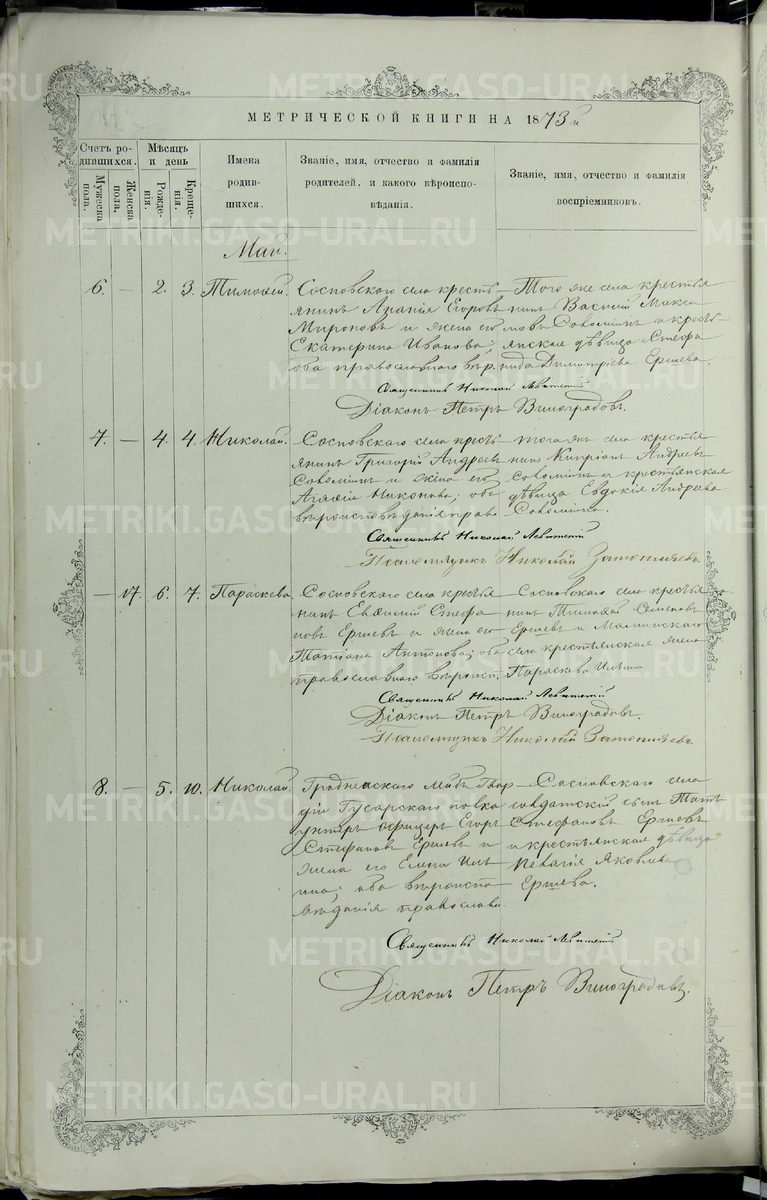 METRIKI.GASO-URAL.RU
МЕТРИЧЕСКОЙ КНИГИ НА 1873 й
Счетъ ро-
дившихся.
Мужеска
пола.
Женска
пола.
Мѣсяцъ
и день
Рожде-
нія.
Креще-
нія.
Имена
родив-
шихся.
Званіе, имя, отчество и фамилія
родителей, и какого вѣроиспо-
вѣданія.
Званіе, имя, отчество и фамилія
воспріемниковъ.
Май.
6. — 2. 3. Тимофей.
Сосновскаго села кресть-
янинъ Ананія Егоровъ
Мироновъ и жена его
Екатерина Иванова;
оба православнаго вѣр.
Того же села крестья
нинъ Василій Макси
мовъ и кресть-
янская дѣвица Стефа
нида Димитріева Ершева.
Священникъ Николай
Діаконъ Петръ Виноградовъ.
7. — 4. 4. Николай.
Сосновскаго села кресть-
янинъ Григорій Андреевъ
и жена его
Агафія Никонова; оба
вѣроисповѣданія право
того жъ села крестья
нинъ Андреевъ
и крестьянская
дѣвица Евдокія Андреева
Священникъ Николай
Псаломщикъ Николай
— 17. 6. 7. Параскева.
Сосновскаго села крестья
нинъ Евфимій Стефа
новъ Ершевъ и жена его
Татіана Антонова; оба
православнаго вѣроисп.
Сосновскаго села крестья
нинъ Тимофей Семеновъ
Ершевъ и Маминскаго
села крестьянская жена
Параскева Ильина
Священникъ Николай
Діаконъ Петръ Виноградовъ.
Псаломщикъ Николай
8. — 5. 10. Николай.
Гродненскаго Лейбъ Гвар-
діи Гусарскаго полка
унтеръ офицеръ Егоръ
Стефановъ Ершевъ и
жена его Елена Иль
ина; оба вѣроиспо
вѣданія православн.
Сосновскаго села
солдатскій сынъ
Стефановъ Ершевъ
и крестьянская дѣвица
Пелагія Яковлева
Ершева.
Священникъ Николай
Діаконъ Петръ Виноградовъ.